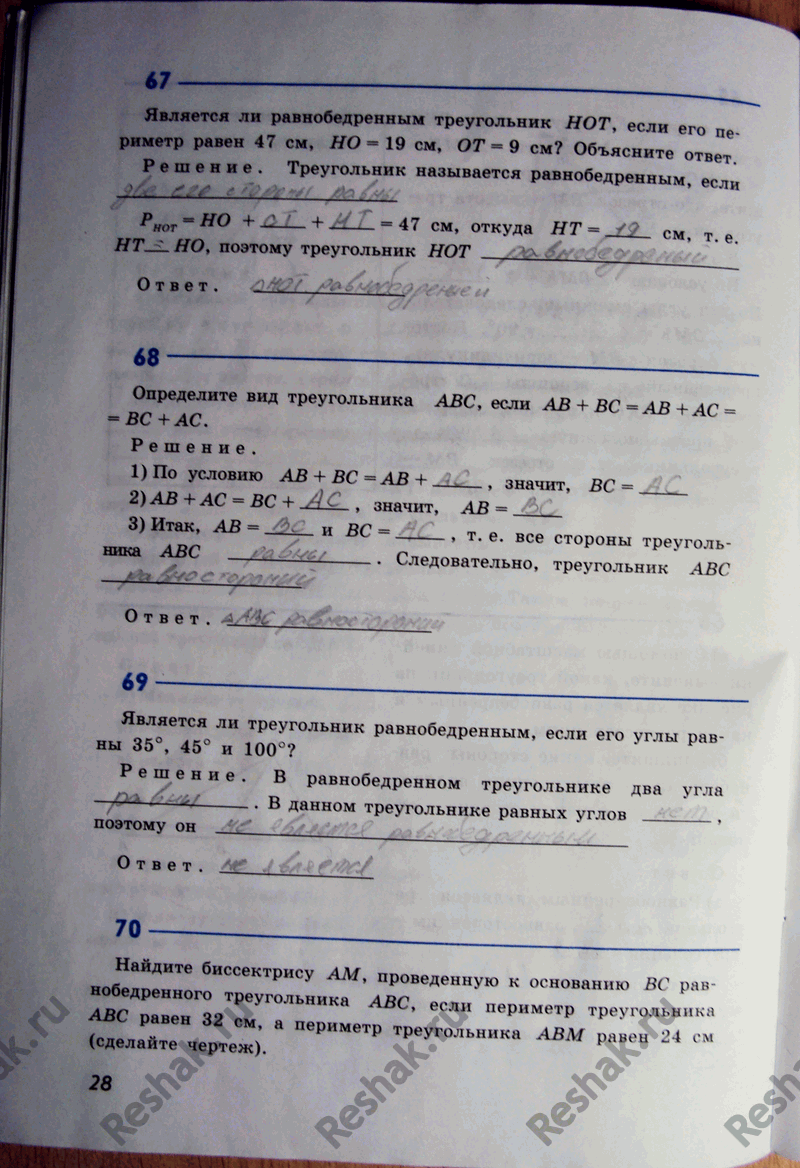 67
Является ли равнобедренным треугольник НОТ, если его пе-
риметр равен 47 см, НО = 19 см, ОТ = 9 см? Объясните ответ.
Решение. Треугольник называется равнобедренным, если
две его стороны равны
Pнот = НО + ОТ + НТ = 47 см, откуда НТ = 19 см, т. е.
НТ = НО, поэтому треугольник НОТ равнобедренный
Ответ. △НОТ равнобедренный
68
Определите вид треугольника АВС, если АВ + ВС = АВ + АС =
= ВС + АС.
Решение.
1) По условию АВ + ВС = АВ + АС, значит, ВС = АС
2) АВ + АС = ВС + АС, значит, АВ = ВС
3) Итак, АВ = ВС и ВС = АС, т. е. все стороны треуголь-
ника АВС равны. Следовательно, треугольник АВС
равносторонний
Ответ. △АВС равносторонний
69
Является ли треугольник равнобедренным, если его углы рав-
ны 35°, 45° и 100°?
Решение. В равнобедренном треугольнике два угла
равны. В данном треугольнике равных углов нет,
поэтому он не является равнобедренным
Ответ. не является
70
Найдите биссектрису АМ, проведенную к основанию ВС рав-
нобедренного треугольника АВС, если периметр треугольника
АВС равен 32 см, а периметр треугольника АВМ равен 24 см
(сделайте чертеж).
28
Reshak.ru
Reshak.ru
Reshak.ru
Reshak.ru
Reshak.ru